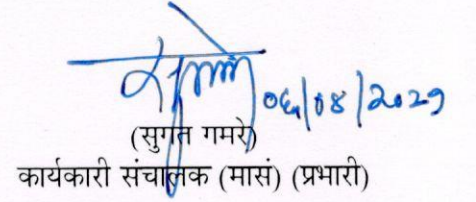 ०६/०४/२०२१
(सुगत गमरे)
कार्यकारी संचालक (मासं) (प्रभारी)